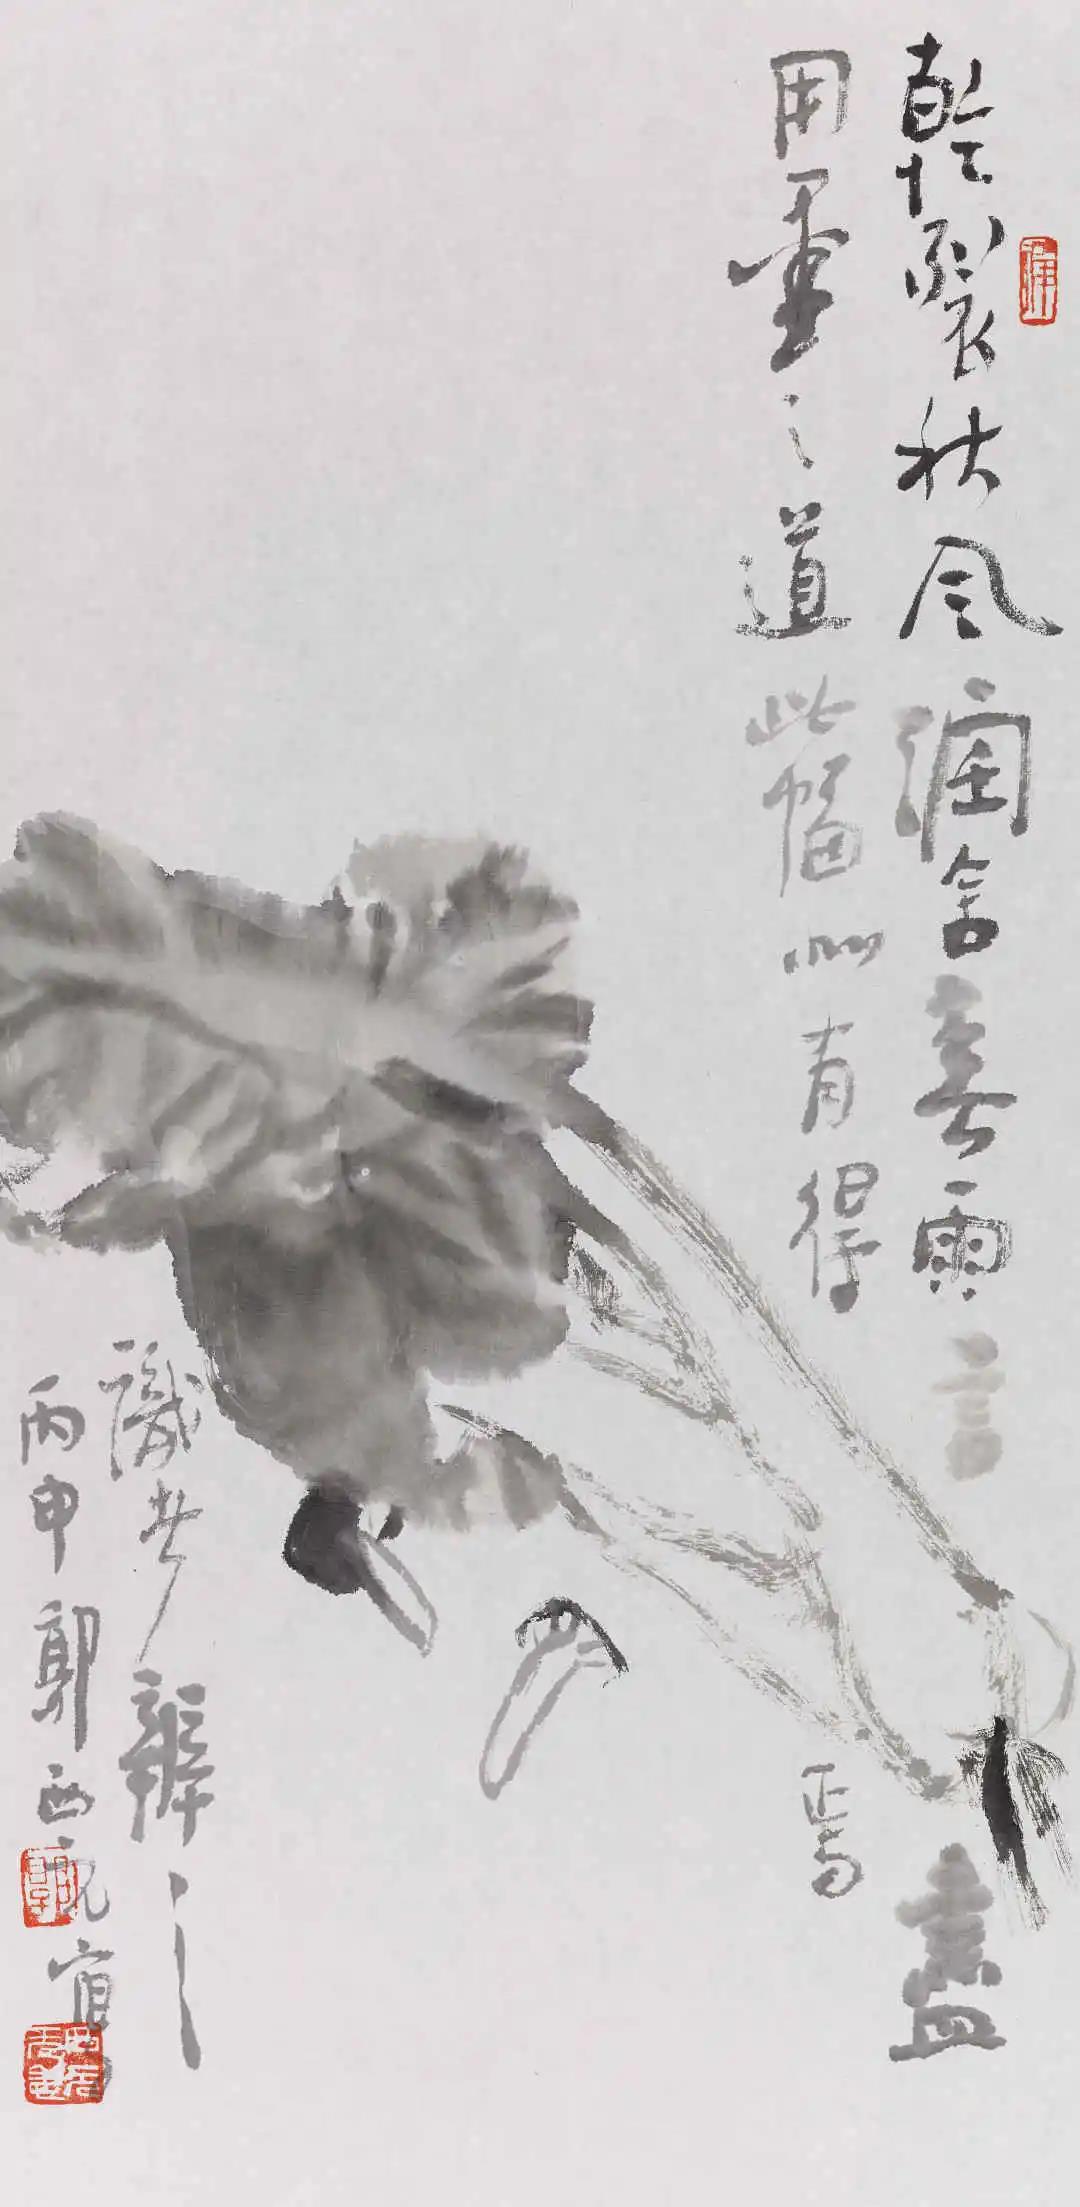 乾裂秋风潤含春雨言盡
用墨之道此幅似有得焉
識者辨之
丙申郭西元